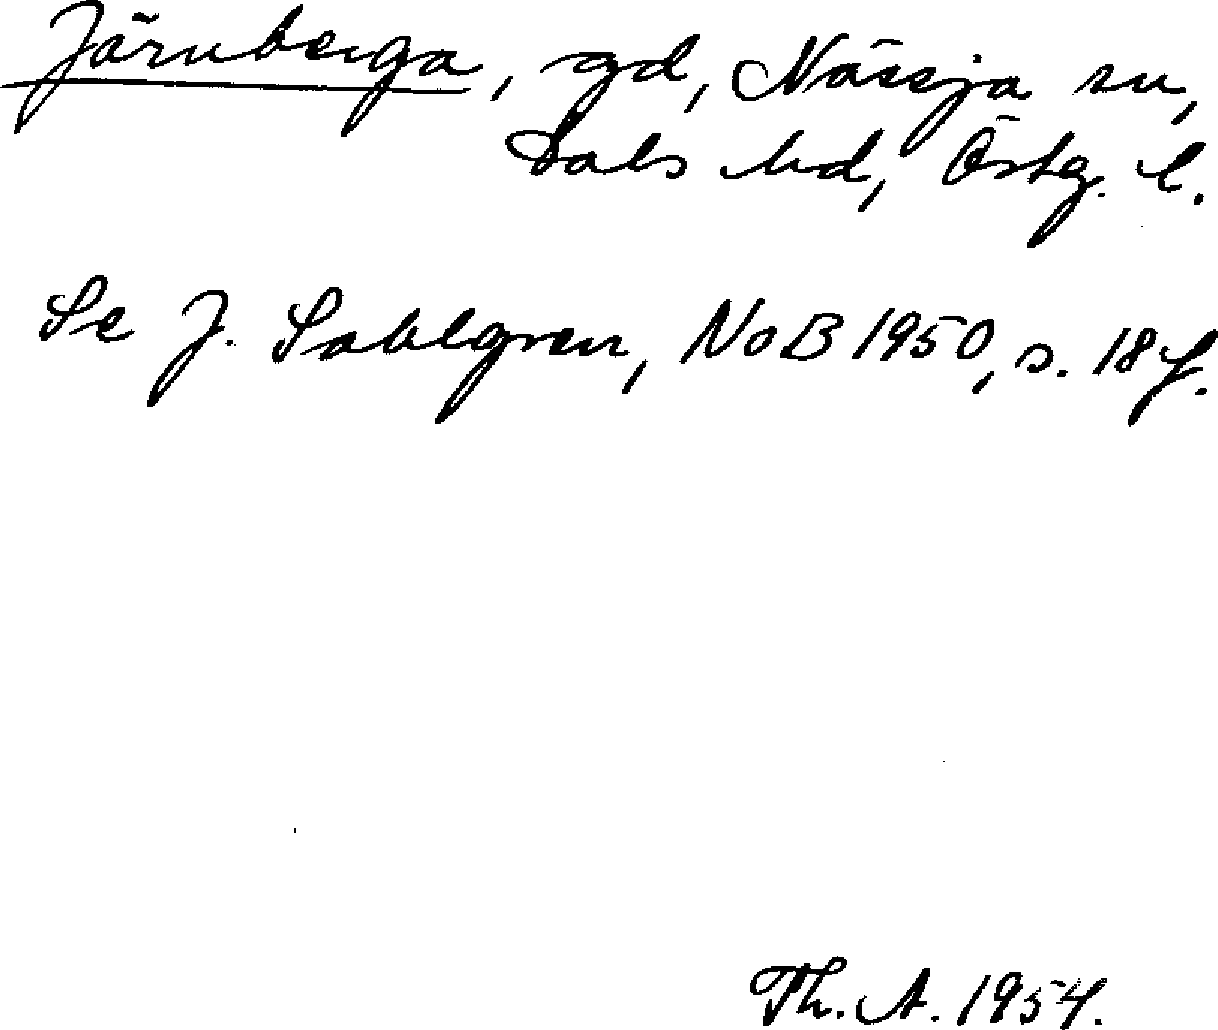 Järnberga, gd, Nässja sn,
Dals hd, Östg. l.
Se J. Sahlgren, NoB 1950, s. 18 f.
Th. A. 1954.